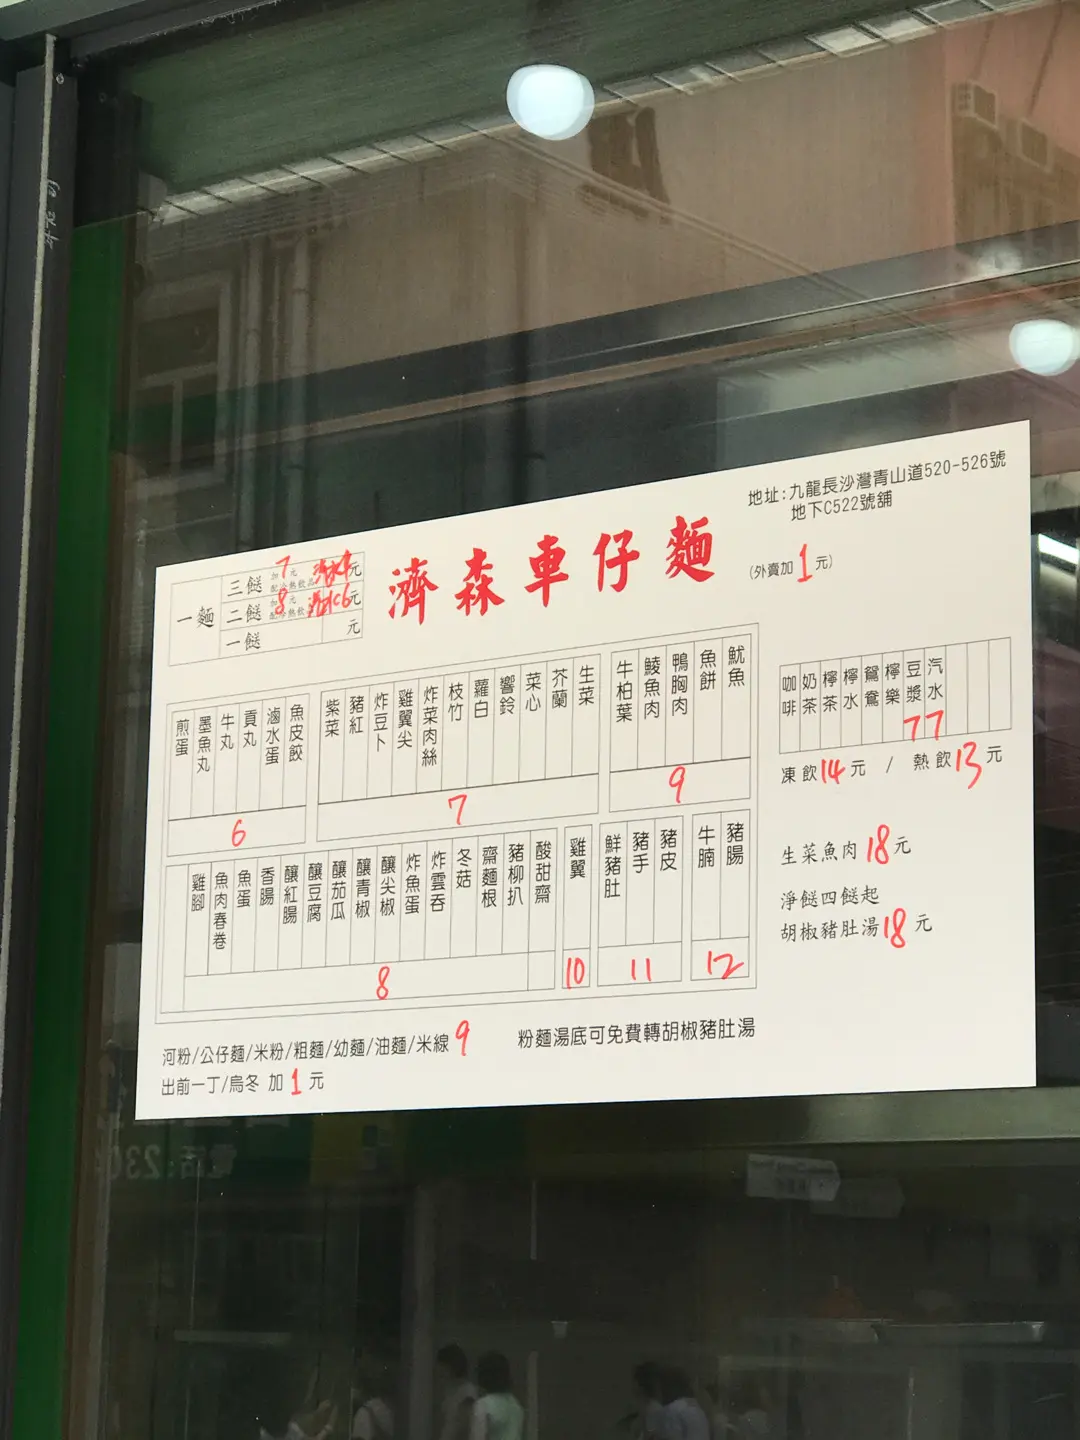 地址:九龍長沙灣青山道520-526號
地下C522號舖
濟森車仔麵
(外賣加1元)
一麵
三餸 加7元 配冷熱飲品 汽水4元
二餸 加8元 配冷熱飲品 汽水6元
一餸 元
煎蛋
墨魚丸
牛丸
貢丸
滷水蛋
魚皮餃
6
紫菜
豬紅
炸豆卜
雞翼尖
炸菜肉絲
枝竹
蘿白
響鈴
菜心
芥蘭
生菜
7
牛柏葉
鯪魚肉
鴨胸肉
魚餅
魷魚
9
雞腳
魚肉春卷
魚蛋
香腸
釀紅腸
釀豆腐
釀茄瓜
釀青椒
釀尖椒
炸魚蛋
炸雲吞
冬菇
齋麵根
豬柳扒
酸甜齋
8
雞翼
10
鮮豬肚
豬手
豬皮
11
牛腩
豬腸
12
咖啡
奶茶
檸茶
檸水
鴛鴦
檸樂
豆漿 7
汽水 7
凍飲14元 / 熱飲13元
生菜魚肉18元
淨餸四餸起
胡椒豬肚湯18元
河粉/公仔麵/米粉/粗麵/幼麵/油麵/米線9
出前一丁/烏冬 加1元
粉麵湯底可免費轉胡椒豬肚湯